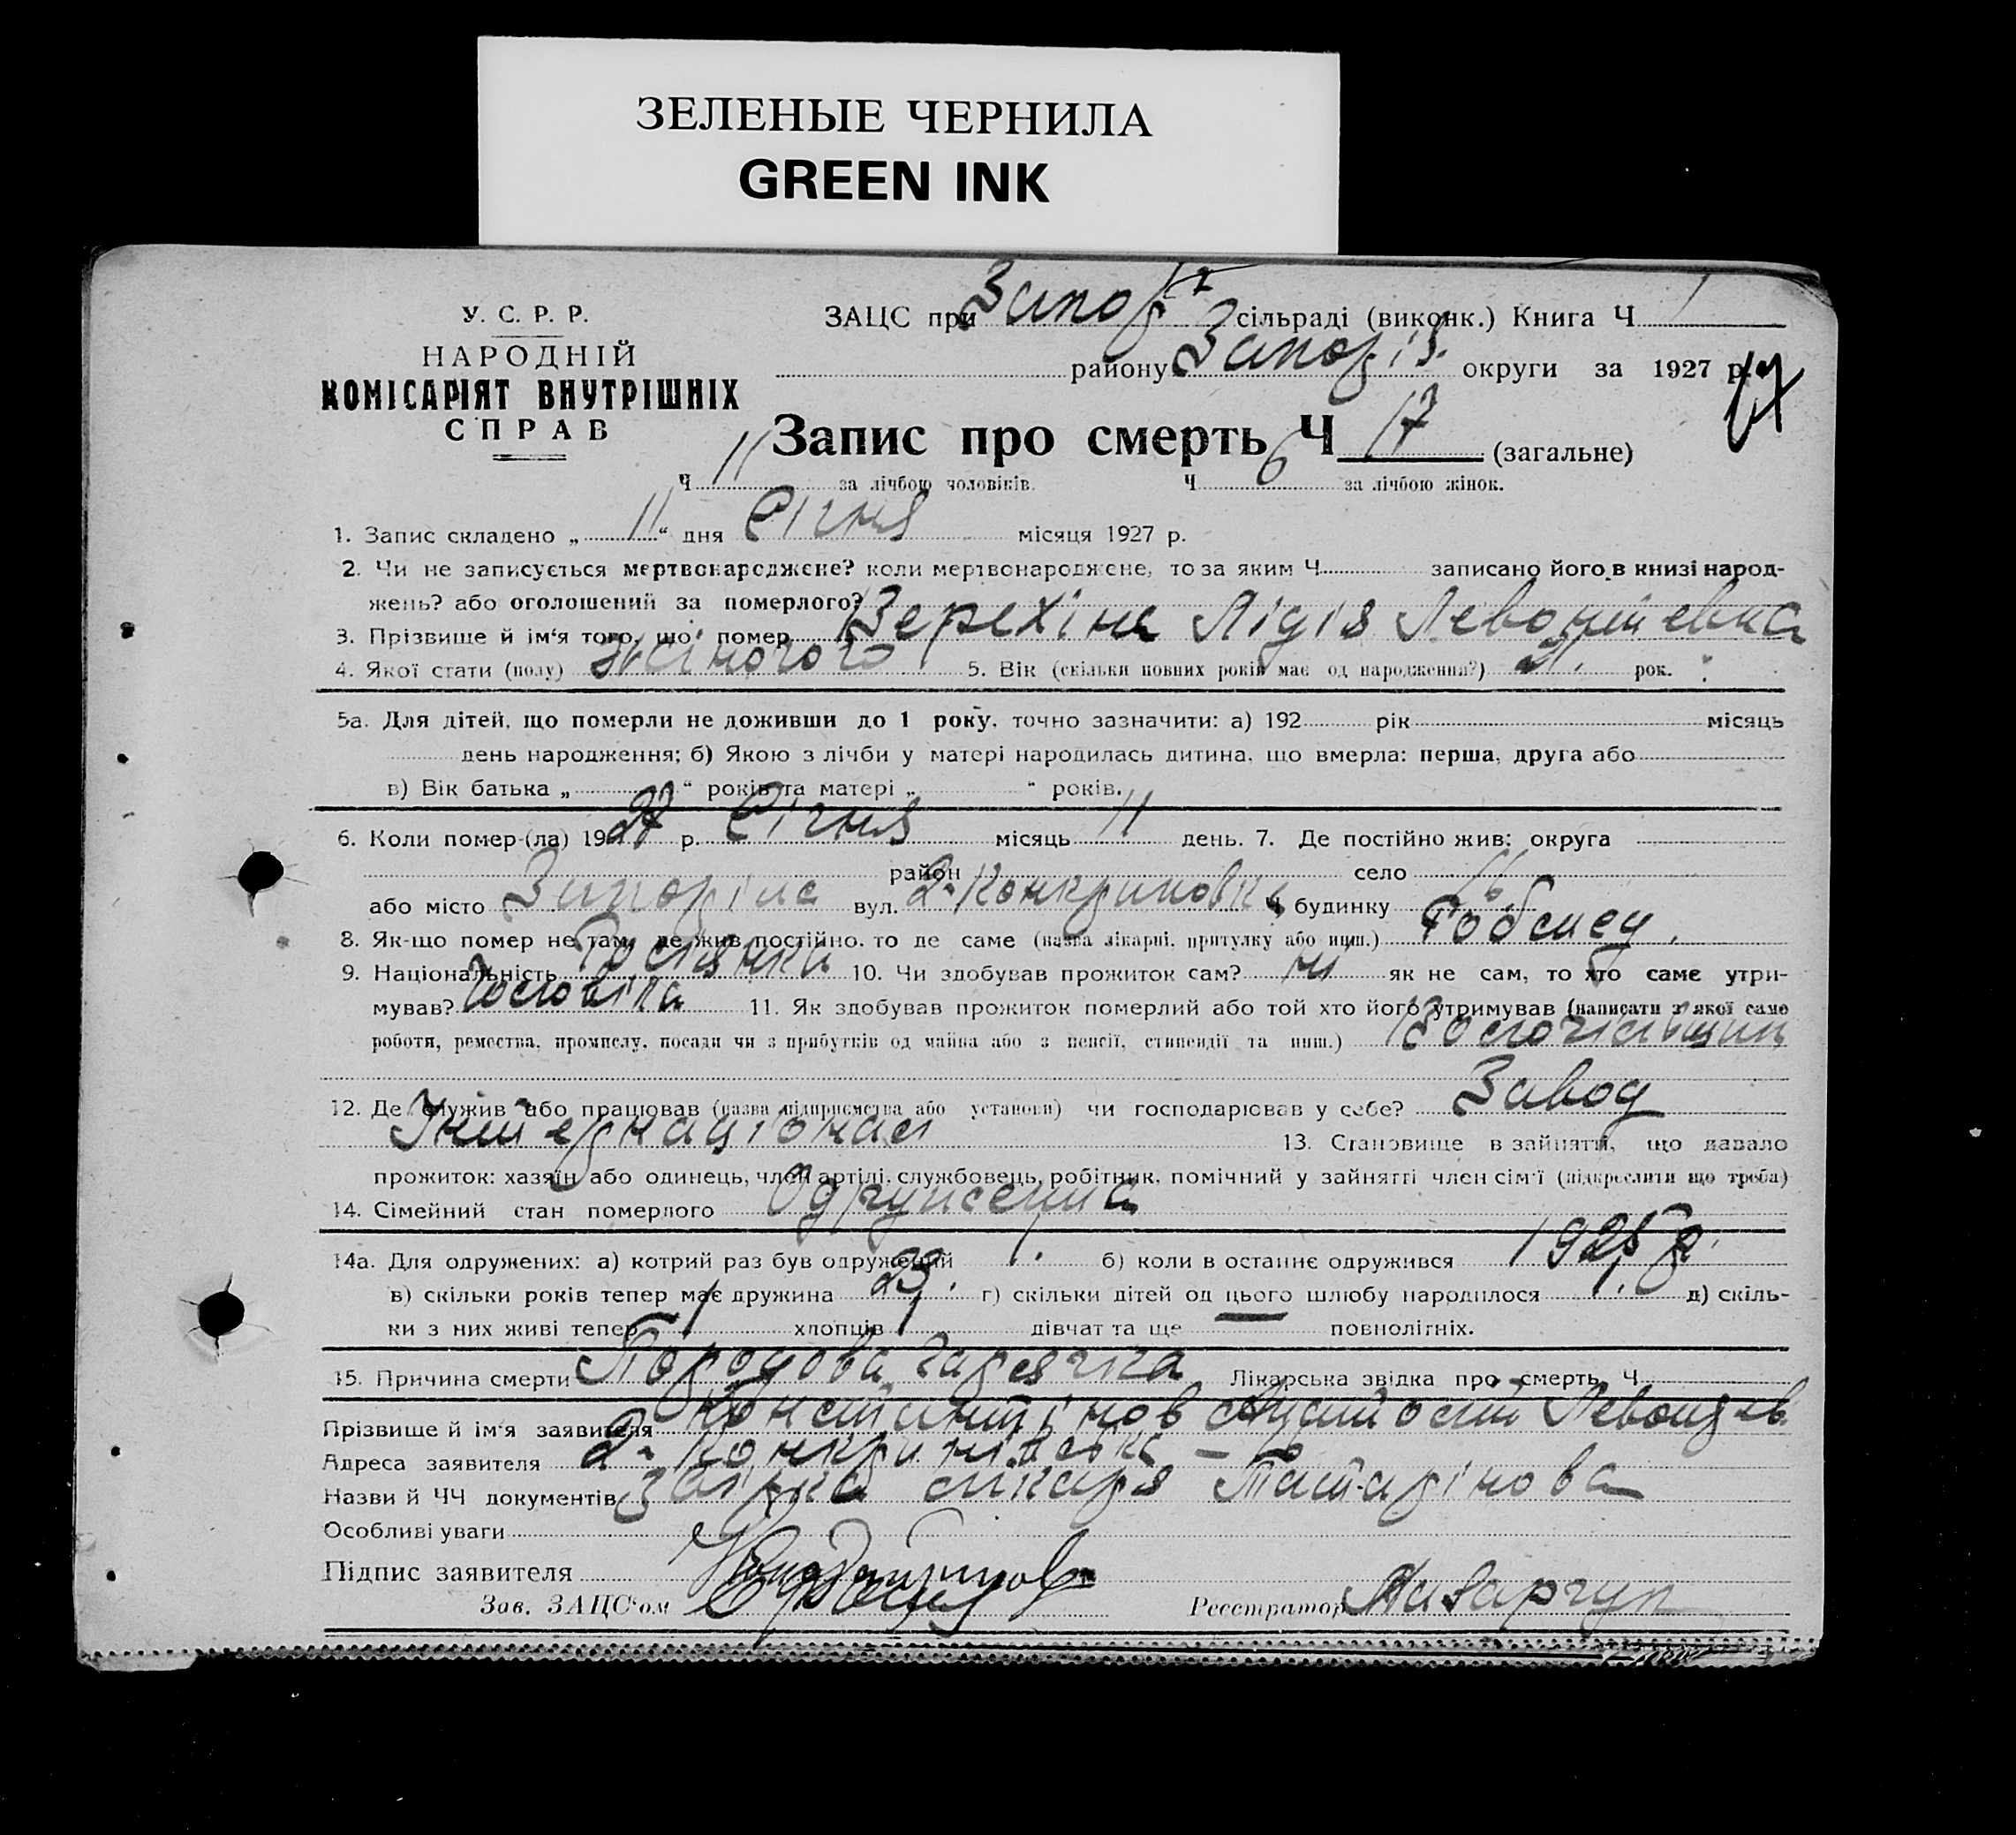 ЗЕЛЕНЫЕ ЧЕРНИЛА
GREEN INK
У. С. Р. Р.
НАРОДНІЙ
КОМІСАРІЯТ ВНУТРІШНІХ
СПРАВ
ЗАЦС при Запор сільраді (виконк.) Книга Ч 1
району Запоріз. округи за 1927 р.
17
Запис про смерть Ч 17 (загальне)
Ч 11 за лічбою чоловіків. Ч 6 за лічбою жінок.
1. Запис складено „ 11 “ дня Січня місяця 1927 р.
2. Чи не записується мертвонароджене? коли мертвонароджене, то за яким Ч записано його в книзі народ-
жень? або оголошений за померлого?
3. Прізвище й ім‘я того, що помер Верехіна Лідія
4. Якої стати (полу) Жіночого 5. Вік (скільки повних років має од народження?) 21. рок.
5а. Для дітей, що померли не доживши до 1 року, точно зазначити: а) 192 рік місяць
день народження; б) Якою з лічби у матері народилась дитина, що вмерла: перша, друга або
в) Вік батька „ “ років та матері „ “ років.
6. Коли помер-(ла) 1927 р. Січня місяць 11 день. 7. Де постійно жив: округа
район село
або місто Запоріжа вул. 2-Конкриновка Ч будинку
8. Як-що помер не там, де жив постійно, то де саме (назва лікарні, притулку або инш.)
9. Національність Росіянка 10. Чи здобував прожиток сам? ні як не сам, то хто саме утри-
мував? Чоловіка 11. Як здобував прожиток померлий або той хто його утримував (написати з якої саме
роботи, ремества, промислу, посади чи з прибутків од майна або з пенсії, стипендії та инш.)
12. Де служив або працював (назва підприємства або установи) чи господарював у себе? Завод
Інтернаціонал 13. Становище в зайнятті, що давало
прожиток: хазяїн або одинець, член артілі, службовець, робітник, помічний у зайнятті член сім‘ї (підкреслити що треба)
14. Сімейний стан померлого Одружена
14а. Для одружених: а) котрий раз був одружений 1. б) коли в останнє одружився 1925 р.
в) скільки років тепер має дружина 23. г) скільки дітей од цього шлюбу народилося 1. д) скіль-
ки з них живі тепер 1 хлопців дівчат та ще — повнолітніх.
15. Причина смерти Породова гарячка Лікарська звідка про смерть Ч
Прізвище й ім‘я заявителя Константінов
Адреса заявителя
Назви й ЧЧ документів Заірка лікаря Татарінова
Особливі уваги
Підпис заявителя
Зав. ЗАЦС‘ом
Реєстратор